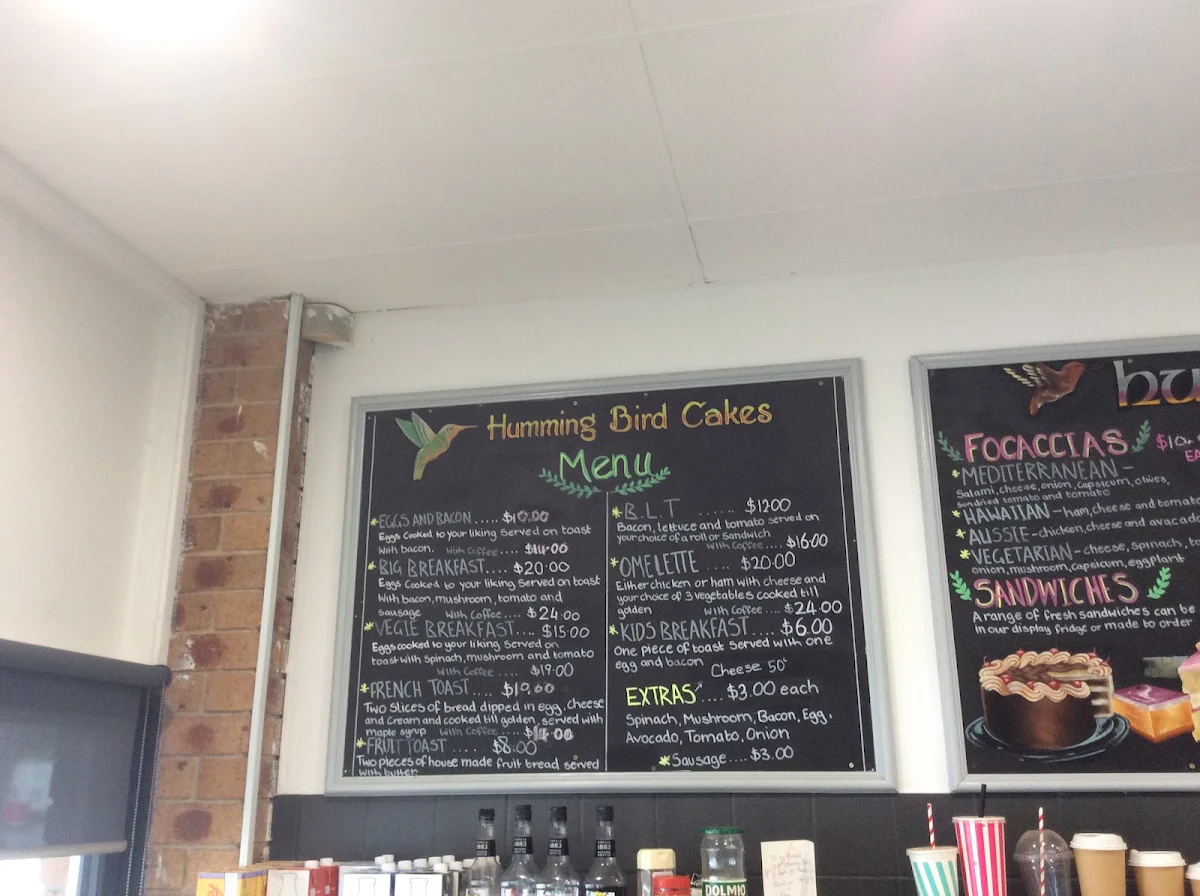 Humming Bird Cakes
Menu
*EGGS AND BACON..... $10.00
Eggs cooked to your liking served on toast
with bacon. With Coffee.... $14.00
*BIG BREAKFAST.... $20.00
Eggs cooked to your liking served on toast
with bacon, mushroom, tomato and
sausage With Coffee.... $24.00
*VEGIE BREAKFAST.... $15.00
Eggs cooked to your liking served on
toast with spinach, mushroom and tomato
With Coffee.... $19.00
*FRENCH TOAST.... $10.00
Two slices of bread dipped in egg, cheese
and cream and cooked till golden, served with
maple syrup With Coffee.... $14.00
*FRUIT TOAST..... $8.00
Two pieces of house made fruit bread served
with butter
*B.L.T ...... $12.00
Bacon, lettuce and tomato served on
your choice of a roll or sandwich
With Coffee.... $16.00
*OMELETTE .... $20.00
Either chicken or ham with cheese and
your choice of 3 vegetables cooked till
golden With Coffee.... $24.00
*KIDS BREAKFAST.... $6.00
One piece of toast served with one
egg and bacon Cheese 50c
EXTRAS.... $3.00 each
Spinach, Mushroom, Bacon, Egg,
Avocado, Tomato, Onion
*Sausage.... $3.00
hu
FOCACCIAS
*MEDITERRANEAN -
Salami, cheese, onion, capsicum, olives,
sundried tomato and tomato
*HAWAIIAN - ham, cheese and
*AUSSIE - chicken, cheese and
*VEGETARIAN - cheese, spinach,
onion, mushroom, capsicum, eggplant
SANDWICHES
A range of fresh sandwiches can be
in our display fridge or made to order
1883
1883
1883
1883
DOLMIO